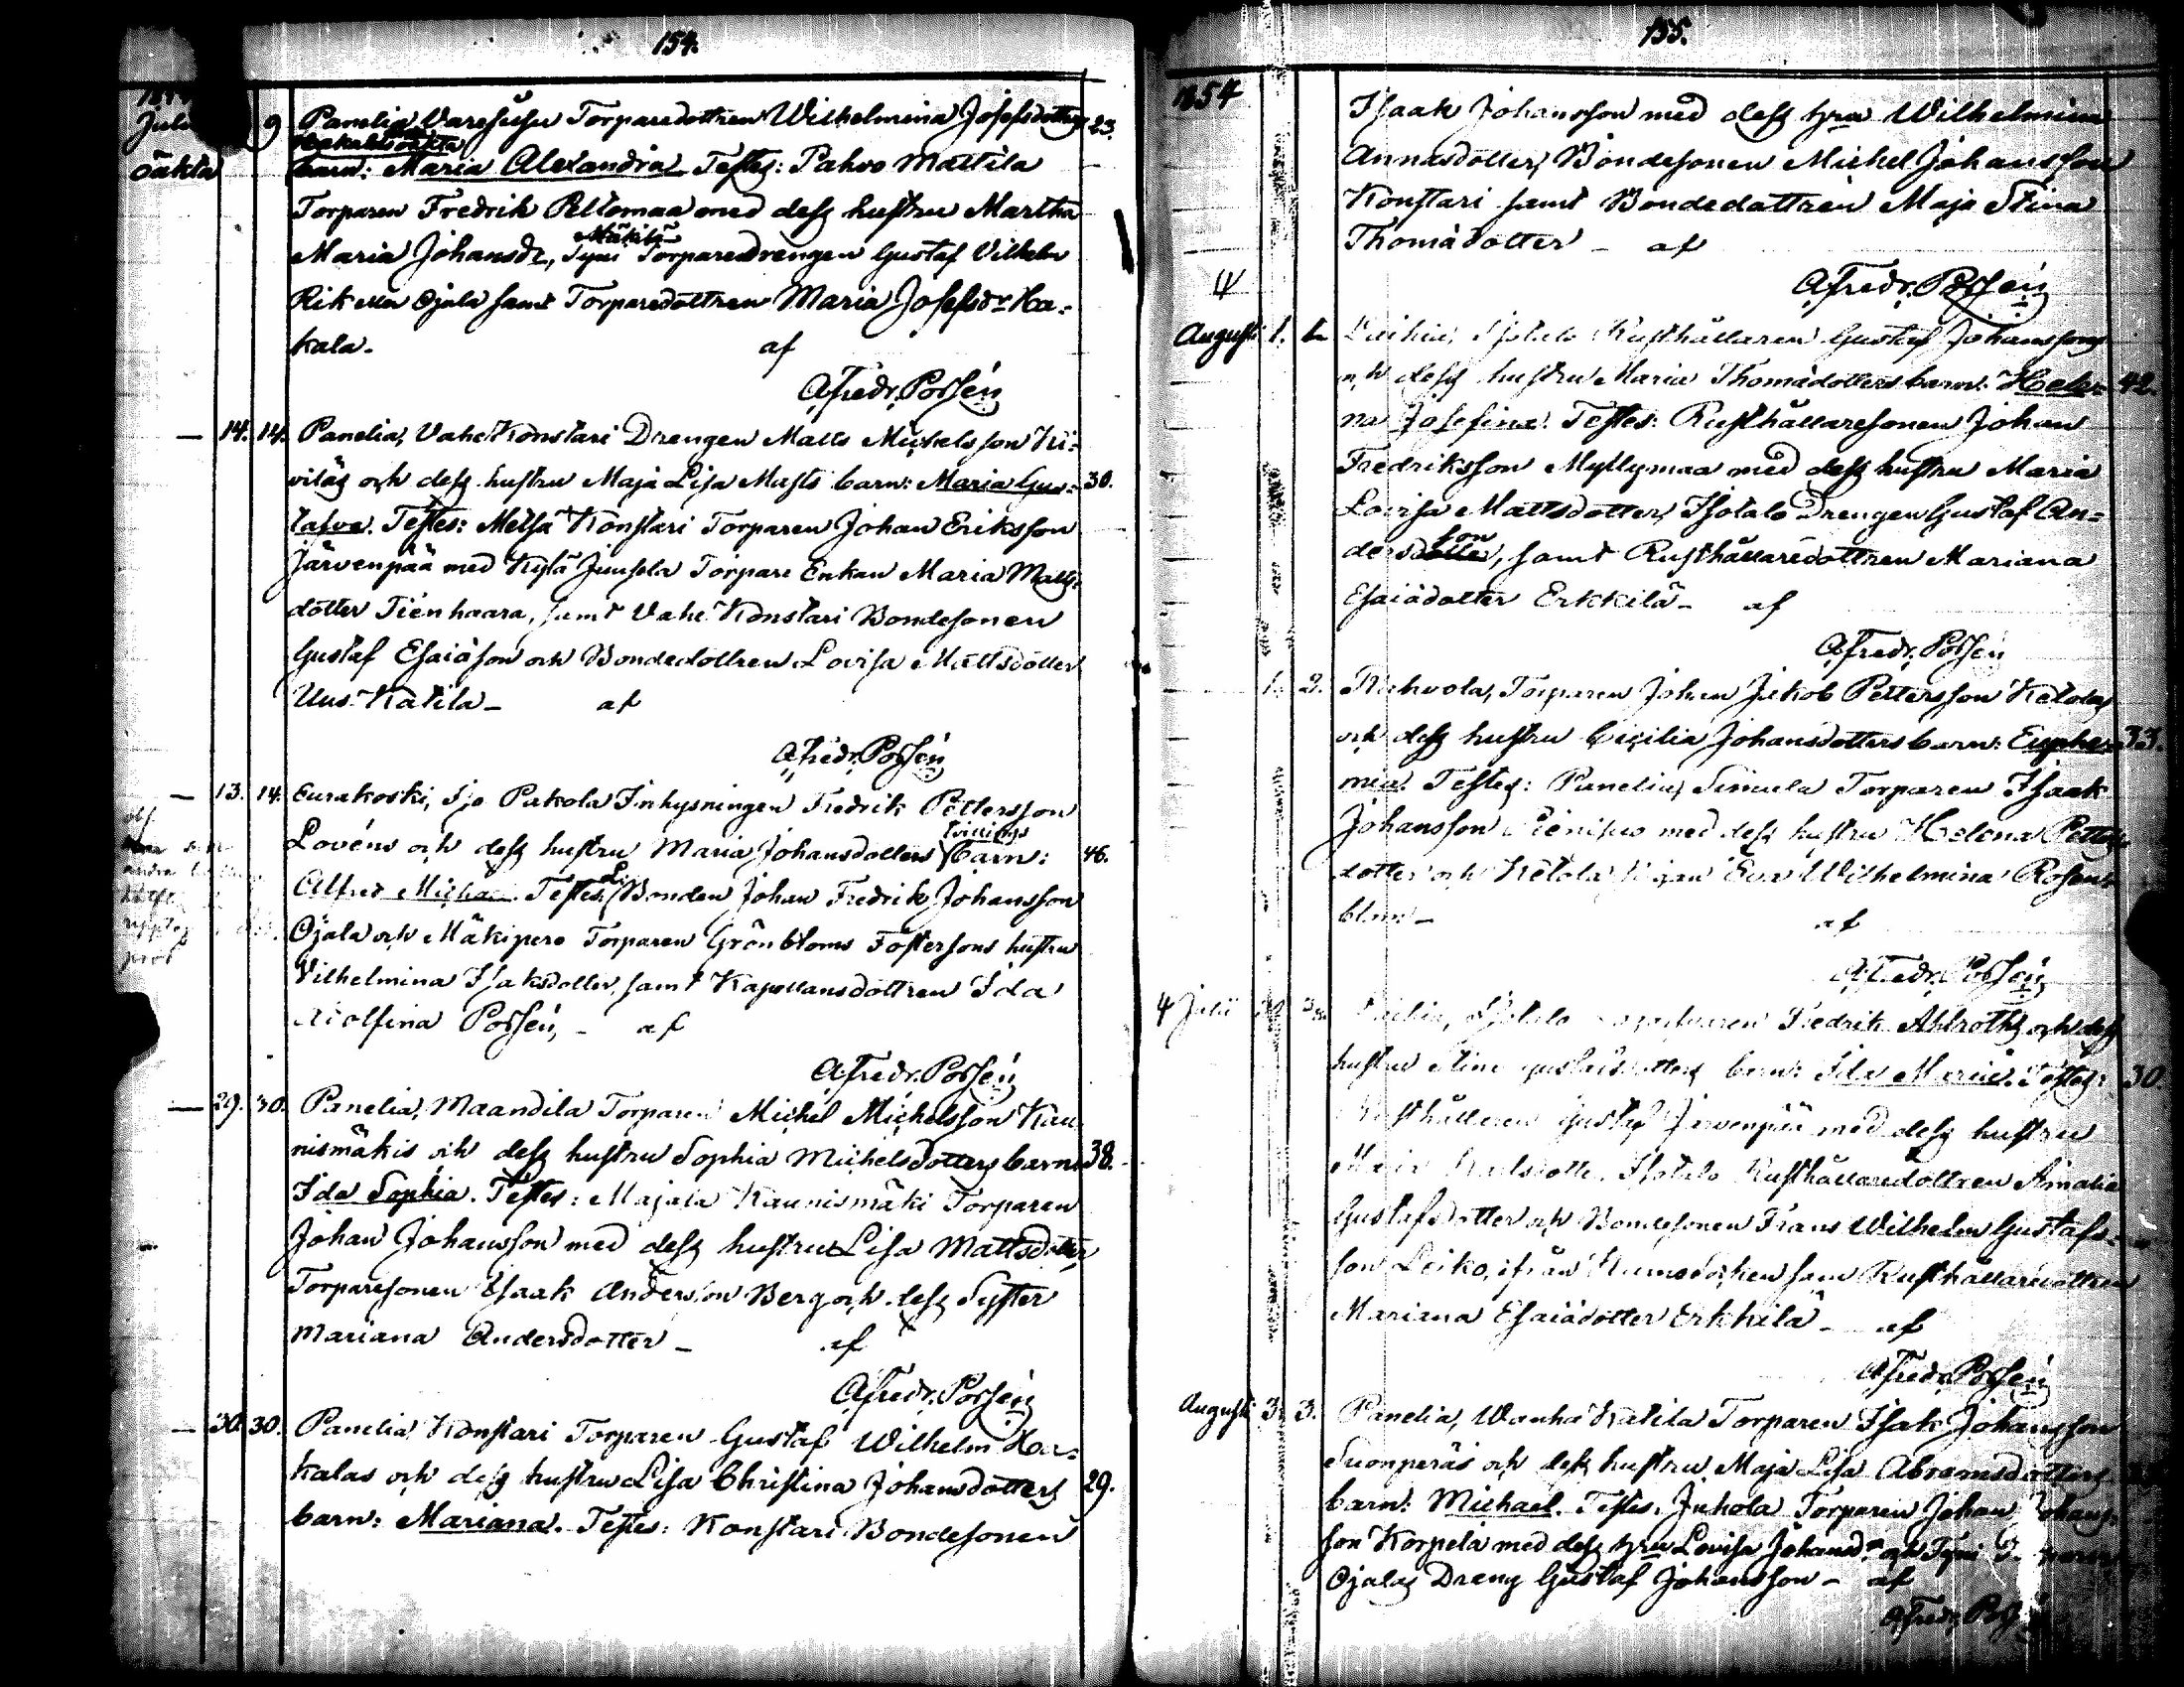 154.
Juli 9 Panelia, Varesusu Torparedottren Wilhelmina Josefsdotters 23.
oäkta
barn: Maria Alexandra Testes: Pahvo Mattila
Torparen Fredrik Peltomaa med dess hustru Martha
Mäkilä
Maria Johansdr, Tyni Torparedrengen Gustaf Vilhelm
Ojala samt Torparedottren Maria Josefsdr Ha-
kala. af
A. Fredr. Possén
14. 14. Panelia, Vahe Konstari Drengen Matts Michelsson Ki-
viläs och dess hustru Maja Lisa Matts barn: Maria Gus- 30.
tafva. Testes: Metsä Konstari Torparen Johan Eriksson
Järvenpää med Kylä Juusela Torpare Enkan Maria Matts-
dotter Tienhaara, samt Vahe Konstari Bondesonen
Gustaf Esaiäson och Bondedottren Lovisa Mattsdotter
Uus-Katila - af
A. Fredr. Possén
13. 14. Eurakoski, Sjo Pakola Inhysningen Fredrik Pettersson
tvillings
Lovéns och dess hustru Maria Johansdotters barn: 46.
Alfred Michael. Testes: Bonden Johan Fredrik Johansson
Ojala och Mäkipere Torparen Grönbloms Fostersons hustru
Vilhelmina Isaksdotter, samt Kapellansdottren Ida
Adolfina Possén, - af
A. Fredr. Possén
29. 30. Panelia, Maandila Torparen Michel Michelsson Kau-
nismäkis och dess hustru Sophia Michelsdotters barn: 38.
Ida Sophia. Testes: Majala Kaunismäki Torparen
Johan Johansson med dess hustru Lisa Mattsdotter,
Torparesonen Isaak Andersson Berg och dess Syster
Mariana Andersdotter - af
A. Fredr. Possén
30. 30. Panelia Konstari Torparen Gustaf Wilhelm Ha-
kalas och dess hustru Lisa Christina Johansdotters 29.
barn: Mariana. Testes: Konstari Bondesonen
155.
1854
Isaak Johansson med dess hru Wilhelmina
Annasdotter, Bondesonen Michel Johansson
Konstari samt Bondedottren Maja Stina
Thomädotter - af
A. Fredr. Possén
Augusti 1. Isotalo Rusthållaren Gustaf Johanssons
och dess hustru Maria Thomädotters barn: Hele- 42.
na Josefina. Testes: Rusthållaresonen Johan
Fredriksson Myllymaa med dess hustru Maria
Lovisa Mattsdotter, Isotalo Drengen Gustaf An-
son
dersdotter, samt Rusthållaredottren Mariana
Esaiädotter Erkkilä - af
A. Fredr. Possén
1. 2. Torparen Johan Jakob Pettersson Ketolas
och dess hustru Cicilia Johansdotters barn: Euphe- 33.
mia. Testes: Panelia, Simula Torparen Isaak
Johansson med dess hustru Helena Petters-
dotter och Ketola Pigan Eva Wilhelmina Rosen-
blom - af
A. Fredr. Possén
4 Julii Isotalo Fredrik Ahlroths och dess
hustru Stina Gustafsdotters barn: Ida Maria. Testes: 30.
Rusthållaren Gustaf Järvenpää med dess hustru
Maria Isotalo Rusthållaredottren Amalia
Gustafsdotter och Bondesonen Frans Wilhelm Gustafs-
son Leiko, ifrån Kumo socken samt Rusthållaredottren
Mariana Esaiädotter Erkkilä - af
A. Fredr. Possén
Augusti 3. 3. Panelia, Wanha Katila Torparen Isak Johansson
Suonperäs och dess hustru Maja Lisa Abramsdotters
barn: Michael. Testes: Juhola Torparen Johan Johans-
son Korpela med dess hru Lovisa Johansdr och Tyni
Ojalas Dreng Gustaf Johansson - af
A. Fredr.